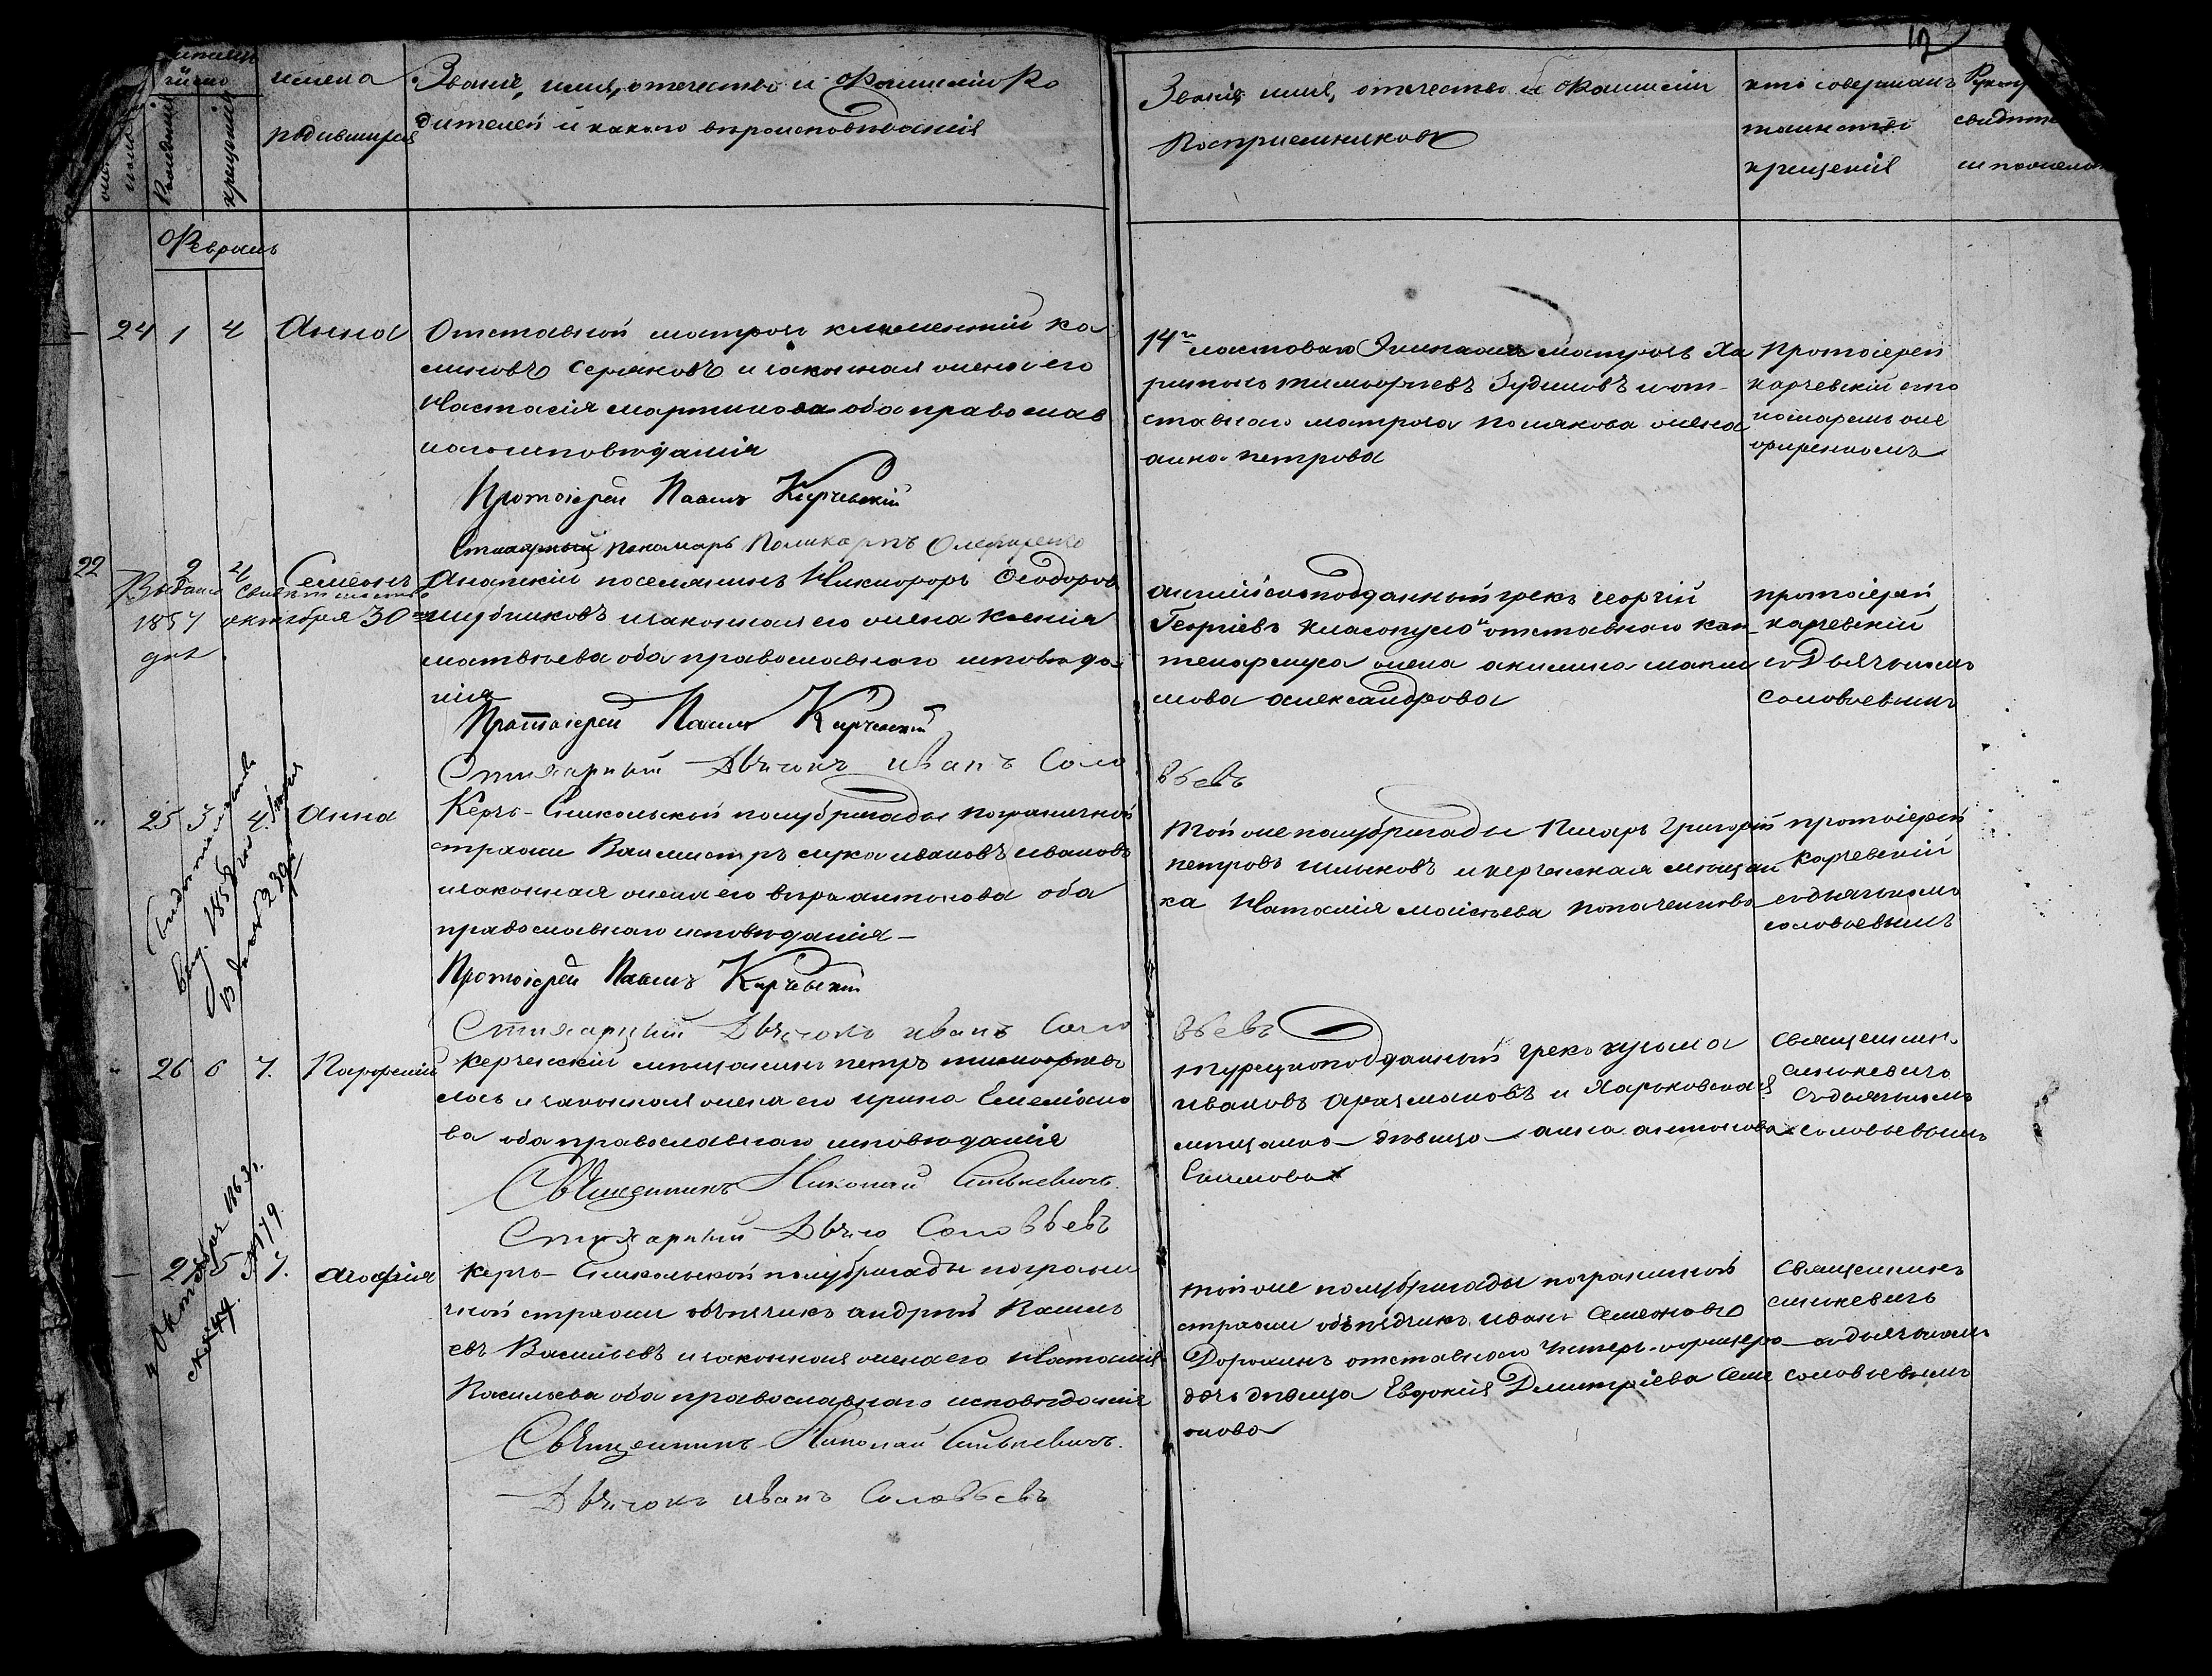 12
имена
родившихся
Званіе, имя, отечество и Фамилію Ро
дителей и какого вѣроисповѣданія
Званіе имя, отечество и Фамиліи
Воспріемниковъ
кто совершалъ
таинство
крещенія
Рожденія
крещенія
Февраль
24 1 4 Анна
Отставной матрозъ климентій ка
линовъ Серяковъ и законная жена его
Настасія мартинова оба православ
наго исповѣданія
Протоіерей Павелъ Карчевскій
Стихарный пономарь Поликарпъ Олефиренко
14го ластоваго Экипажа матрозъ Ха
ритонъ тимофѣевъ Гудимовъ и от-
ставнаго матроза полякова жена
анна петрова
Протоіерей
карчевскій съ по
номаремъ оле
фиренкомъ
22 2 4 Семеонъ
Выдано Свидѣтельство
1857 октября 30
Анапскій поселянинъ Никифоръ Феодоровъ
шубниковъ и законная его жена Ксенія
матвѣева оба православнаго исповѣда
нія
Протоіерей Павелъ Карчевскій
Стихарный Дьячокъ иванъ Соло
вьевъ
англійскоподданный грекъ георгій
Георгіевъ Класопуло и отставнаго кап
тенармуса жена акилина макси
мова александрова
протоіерей
карчевскій
съ Дьячкомъ
Соловьевымъ
25 3 4 Анна
Керчь-Еникольской полубригады пограничной
стражи Вахмистръ лука ивановъ ивановъ
и законная жена его вѣра антонова оба
православнаго исповѣданія
Протоіерей Павелъ Карчевскій
Стихарный Дьячокъ иванъ Соло
вьевъ
Той же полубригады Писарь Григорій
петровъ ильковъ и керченская мѣщан
ка Наталія моисеева
протоіерей
Карчевскій
съ дьячкомъ
соловьевымъ
26 6 7. Парфеній
Керченскій мѣщанинъ петръ тимофѣевъ
и законная жена его ирина Емеліано
ва оба православнаго исповѣданія
Священникъ Николай Синькевичъ.
Стихарный Дьячо Соловьевъ
турецкоподданный грекъ кузьма
ивановъ арахмановъ и Харьковская
мѣщанка дѣвица анна антонова
Священникъ
синкевичъ
съ дьячкомъ
соловьевымъ
27 5 7. Агафія
Керчь-Еникольской полубригады пограни
чной стражи объѣзчикъ андрей Васил
евъ Васильевъ и законная жена его Наталія
Васильева оба православнаго исповѣданія
Священникъ Николай Синькевичъ.
Дьячокъ иванъ Соловьевъ
той же полубригады пограничной
стражи объѣздчикъ иванъ Семеновъ
Дорохинъ отставнаго Унтеръ-офицера
дочь дѣвица Евдокія Дмитріева Сем
енова
Священникъ
синкевичъ
съ дьячкомъ
соловьевымъ